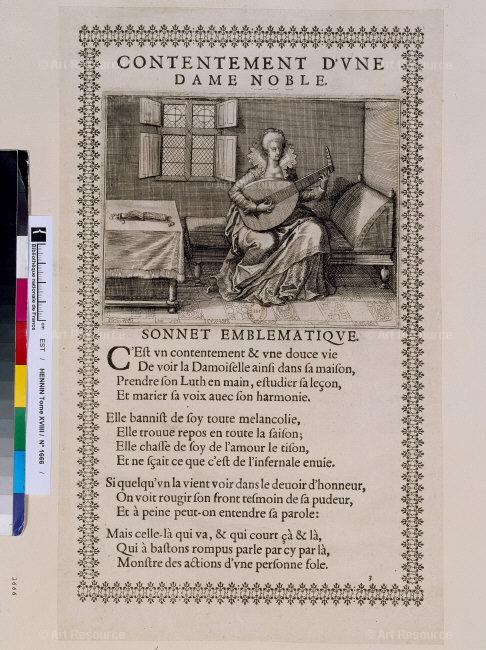 CONTENTEMENT D'VNE
DAME NOBLE.
SONNET EMBLEMATIQVE.
C'Est vn contentement & vne douce vie
De voir la Damoiſelle ainſi dans ſa maiſon,
Prendre ſon Luth en main, eſtudier ſa leçon,
Et marier ſa voix auec ſon harmonie.
Elle banniſt de ſoy toute melancolie,
Elle trouue repos en toute la ſaiſon;
Elle chaſſe de ſoy de l'amour le tiſon,
Et ne ſçait ce que c'eſt de l'infernale enuie.
Si quelqu'vn la vient voir dans le deuoir d'honneur,
On voit rougir ſon front teſmoin de ſa pudeur,
Et à peine peut-on entendre ſa parole:
Mais celle-là qui va, & qui court çà & là,
Qui à baſtons rompus parle par cy par là,
Monſtre des actions d'vne perſonne fole.
3
Bibliothèque nationale de France
EST / HENNIN Tome XVIII / N° 1666 /
1666
© Art Resource
© Art Resource
© Art Resource
© Art Resource